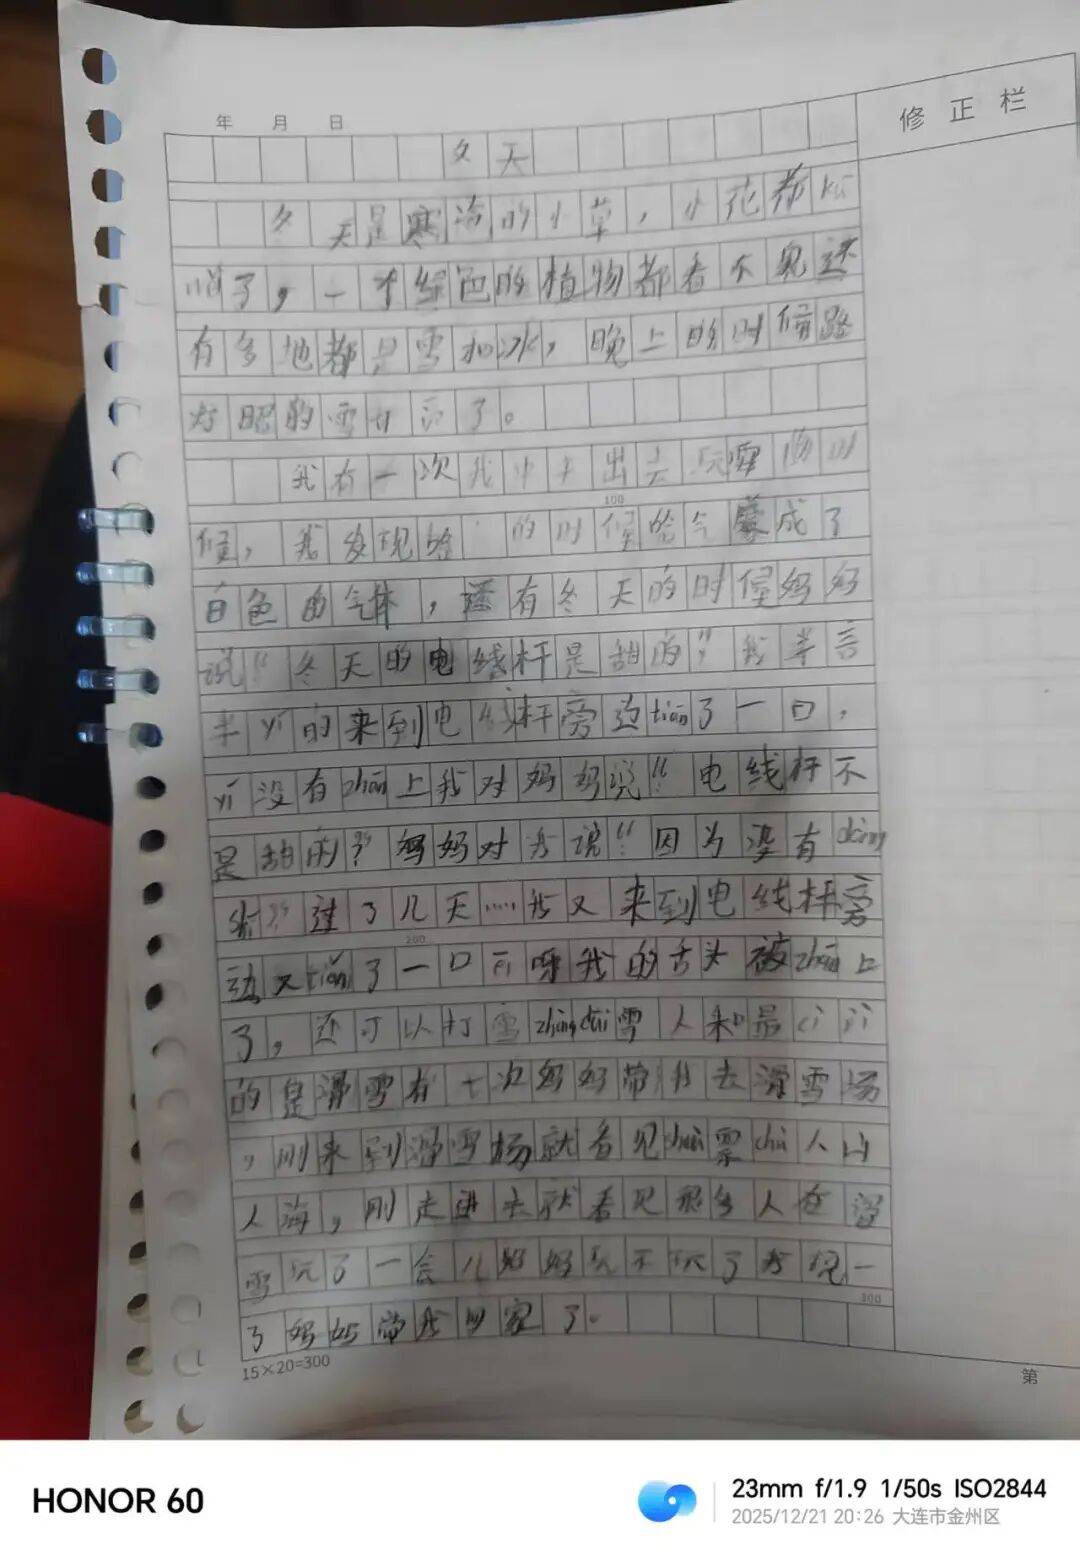 年 月 日
修正栏
冬天
冬天是寒冷的小草，小花都kū
了，一个绿色的植物都看不见还
有多地都是雪和冰，晚上的时候路
灯照的雪
我有一次我出去玩雪的时
候，我发现哈的时候哈气变成了
白色的气体，还有冬天的时候妈妈
说“冬天的电线杆是甜的”我半言
半yí的来到电线杆旁边tiǎn了一口，
yí没有zhān上我对妈妈说“电线杆不
是甜的”妈妈对我说“因为没有dòng
”过了几天……我又来到电线杆旁
边又tiǎn了一口āi呀我的舌头被zhān上
了，还可以打雪zhàng duī雪人和最cì jī
的是滑雪有一次妈妈带我去滑雪场
，刚来到滑雪场就看见shòu票chù人山
人海，刚走进去就看见很多人在滑
雪玩了一会儿妈妈玩不玩了我说
了妈妈带我回家了。
100
200
300
15×20=300
第
HONOR 60
23mm f/1.9 1/50s ISO2844
2025/12/21 20:26 大连市金州区